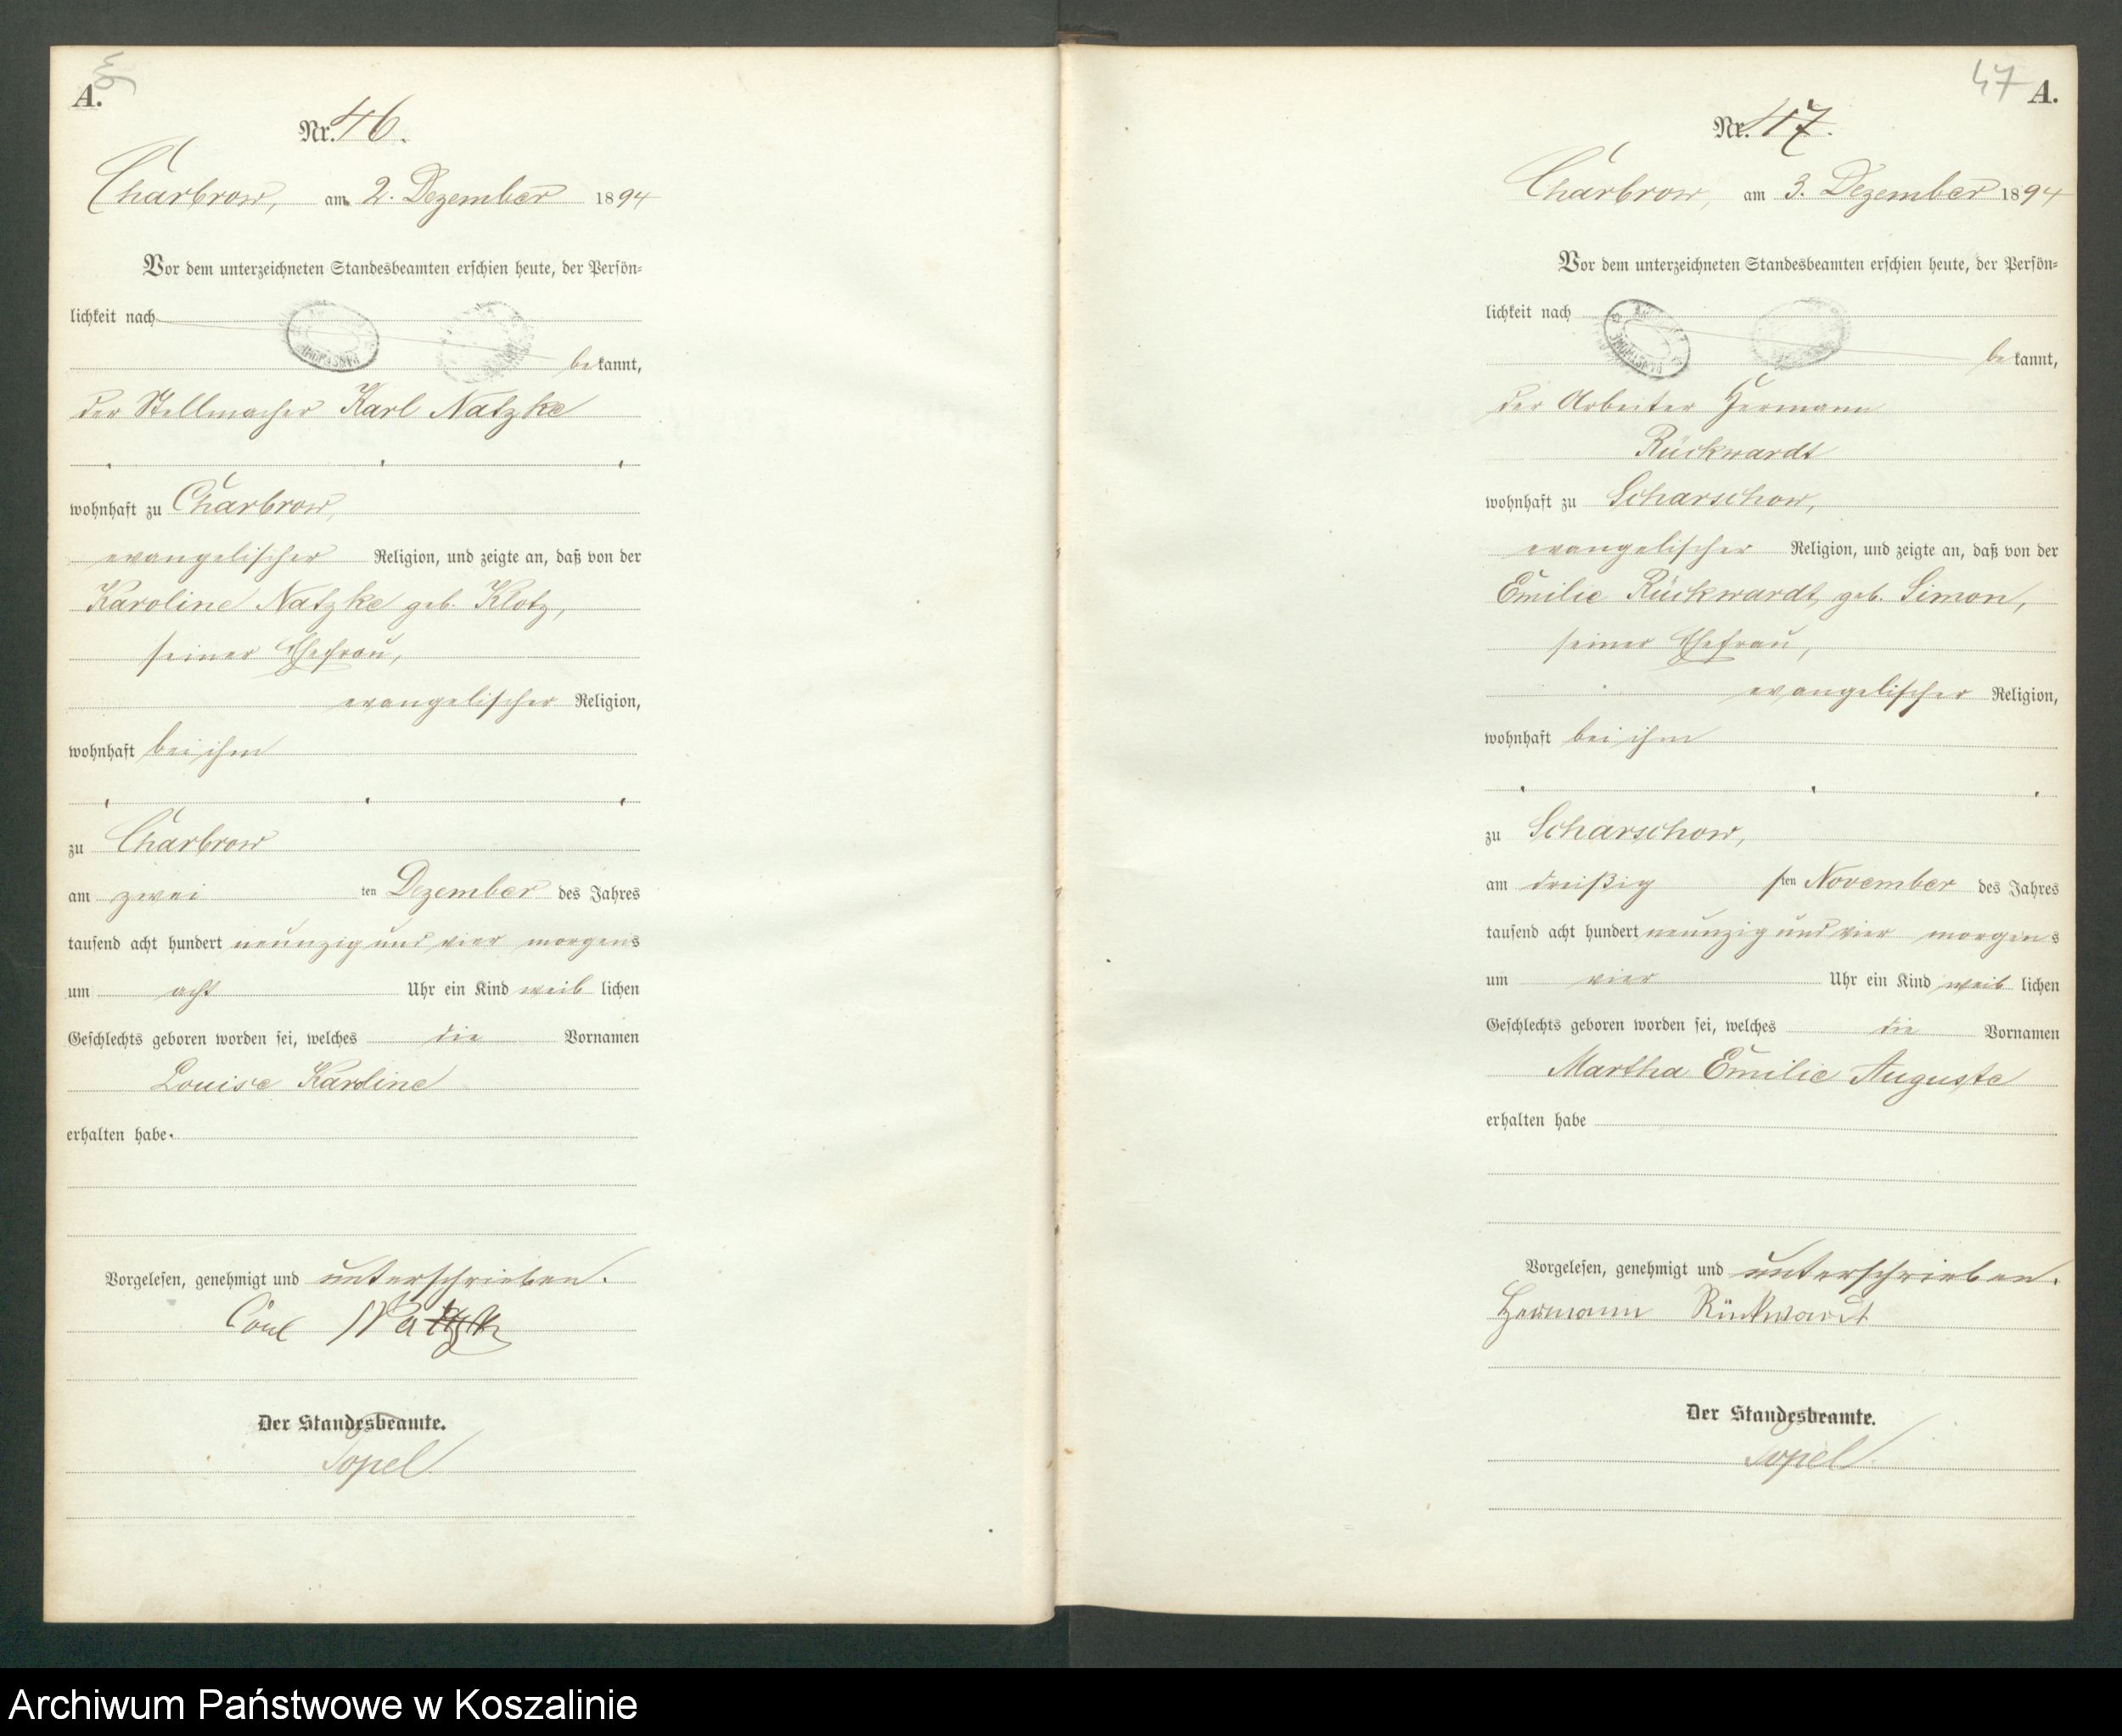 A.
Nr. 46.
Charbrow, am 2. Dezember 1894
Vor dem unterzeichneten Standesbeamten erschien heute, der Persön-
lichkeit nach
bekannt,
der Stellmacher Karl Natzke
wohnhaft zu Charbrow,
evangelischer Religion, und zeigte an, daß von der
Karoline Natzke geb. Klotz,
seiner Ehefrau,
evangelischer Religion,
wohnhaft bei ihm
zu Charbrow
am zwei ten Dezember des Jahres
tausend acht hundert neunzig und vier morgens
um acht Uhr ein Kind weiblichen
Geschlechts geboren worden sei, welches die Vornamen
Louise Karoline
erhalten habe.
Vorgelesen, genehmigt und unterschrieben.
Carl Natzke
Der Standesbeamte.
Topel
47 A.
Nr. 47.
Charbrow, am 3. Dezember 1894
Vor dem unterzeichneten Standesbeamten erschien heute, der Persön-
lichkeit nach
bekannt,
der Arbeiter Hermann
Rückwardt
wohnhaft zu Scharschow,
evangelischer Religion, und zeigte an, daß von der
Emilie Rückwardt, geb. Simon,
seiner Ehefrau,
evangelischer Religion,
wohnhaft bei ihm
zu Scharschow,
am dreißig sten November des Jahres
tausend acht hundert neunzig und vier morgens
um vier Uhr ein Kind weiblichen
Geschlechts geboren worden sei, welches die Vornamen
Martha Emilie Auguste
erhalten habe
Vorgelesen, genehmigt und unterschrieben.
Hermann Rückwardt
Der Standesbeamte.
Topel
Archiwum Państwowe w Koszalinie